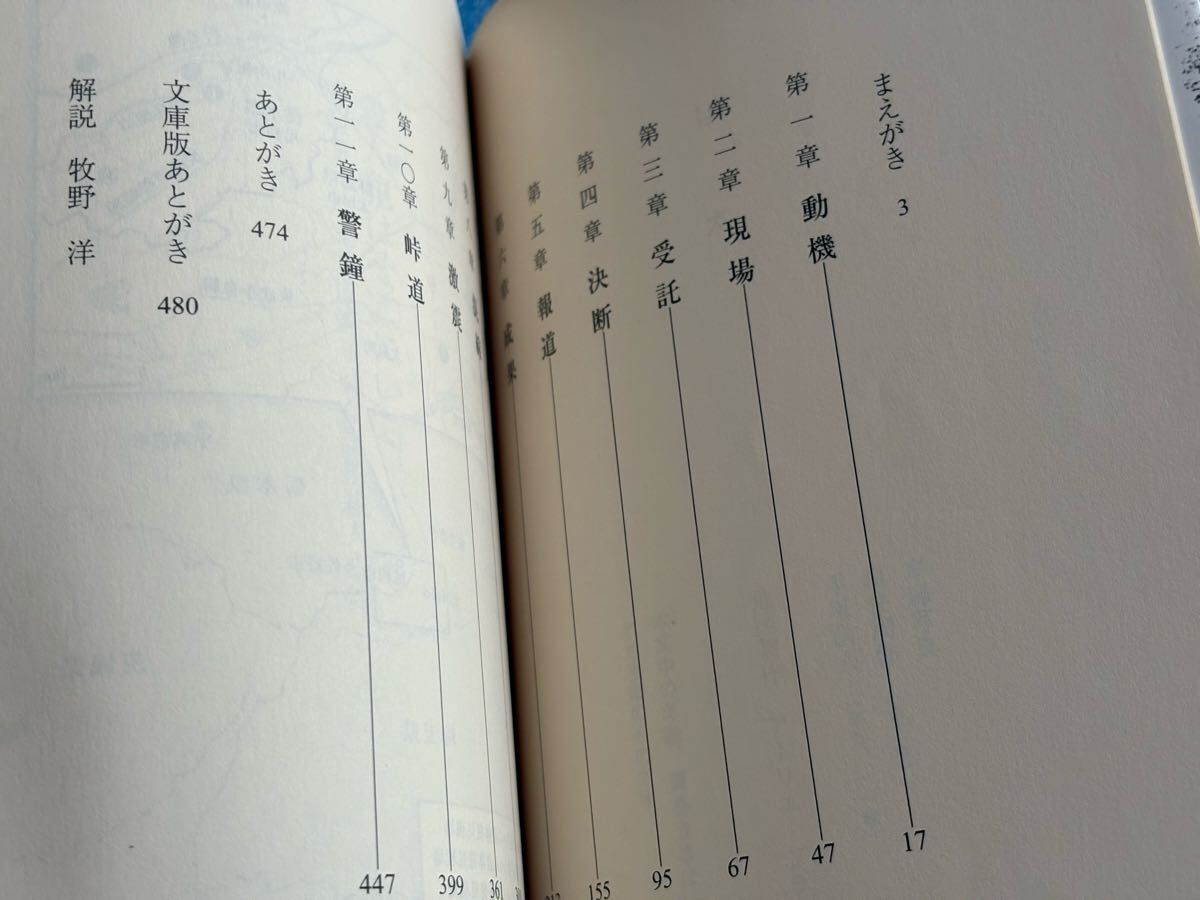 まえがき 3
第一章 動機 17
第二章 現場 47
第三章 受託 67
第四章 決断 95
第五章 報道 155
第六章 成果
第九章 激震 361
第一〇章 峠道 399
第一一章 警鐘 447
あとがき 474
文庫版あとがき 480
解説 牧野 洋